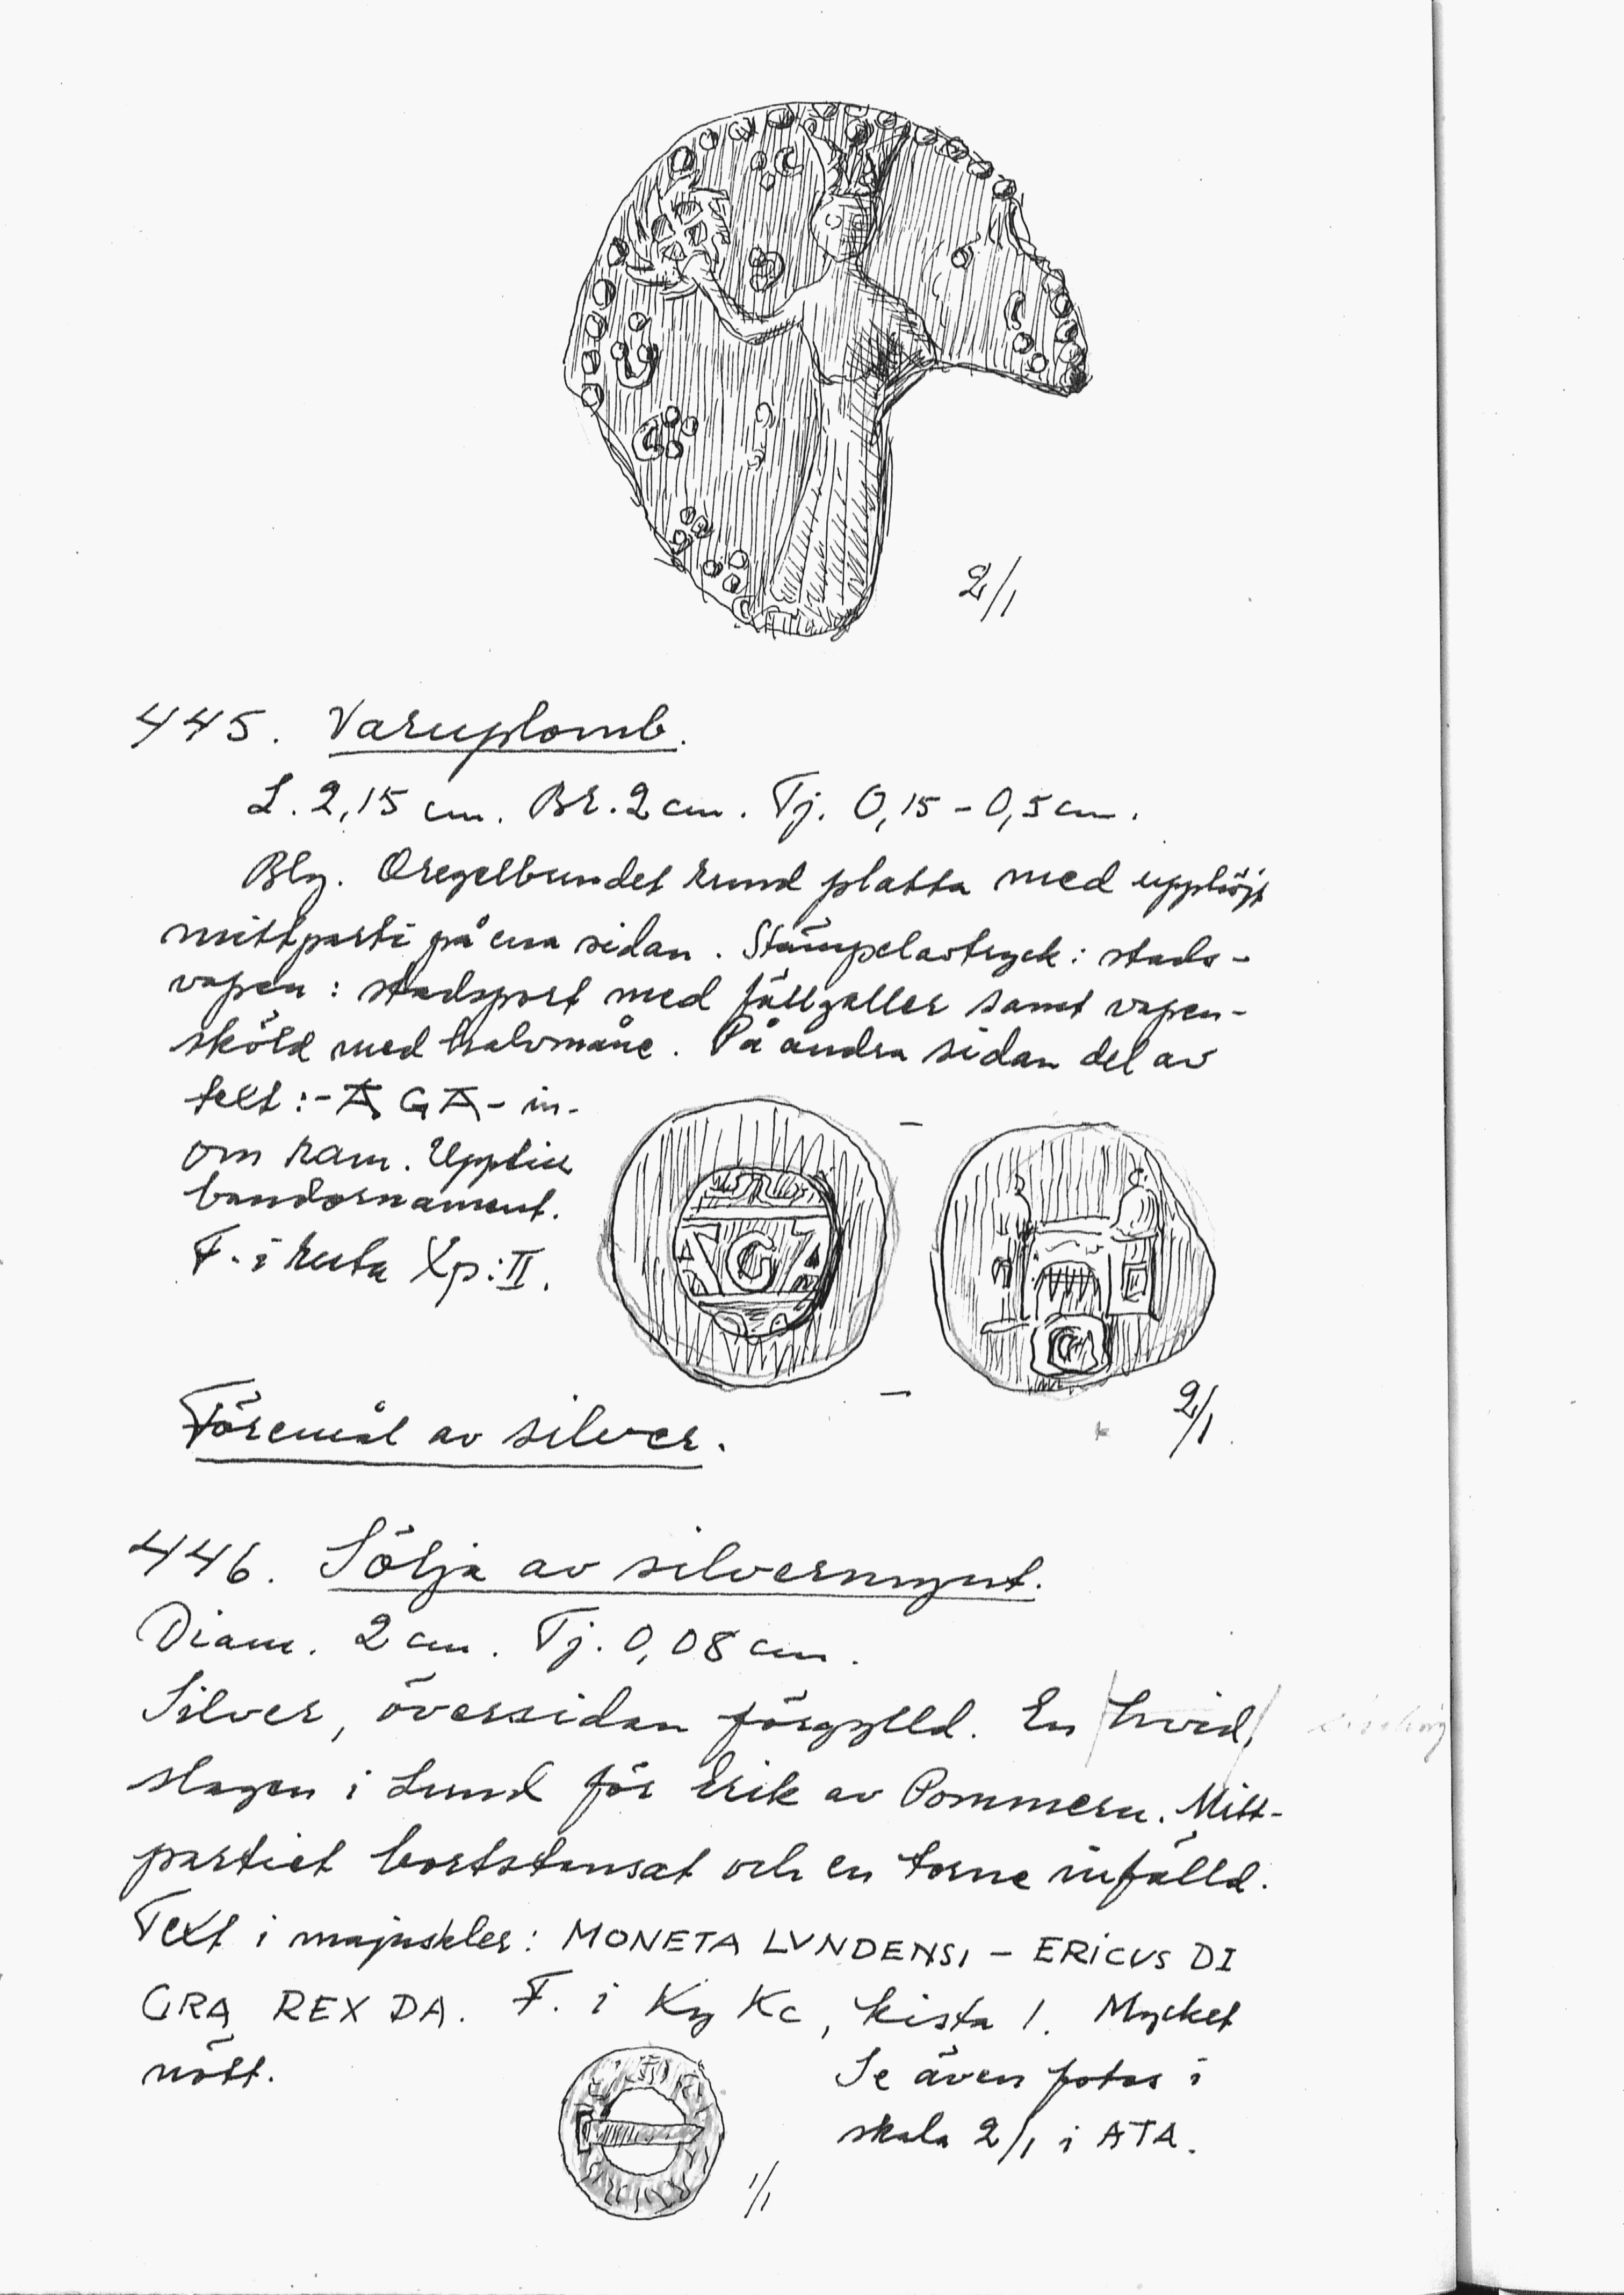 2/1
445. Varuplomb.
L. 2,15 cm. Br. 2 cm. Tj. 0,15 - 0,5 cm.
Bly. Oregelbundet rund platta med upphöjt
mittparti på ena sidan. Stämpelavtryck: stads-
vapen: stadsport med fällgaller samt vapen-
sköld med halvmåne. På andra sidan del av
text: - A G A - in-
om ram. Upptill
bandornament.
F. i ruta Xp:II.
AGA
2/1.
Föremål av silver.
446. Sölja av silvermynt.
Diam. 2 cm. Tj. 0,08 cm.
Silver, översidan förgylld. En /hvid/
slagen i Lund för Erik av Pommern. Mitt-
partiet bortstansat och en torne infälld.
Text i majuskler: MONETA LVNDENSI - ERICVS DI
GRA REX DA. F. i Ky Kc, kista 1. Mycket
nött.
Se även fotos i
skala 2/1 i ATA.
1/1